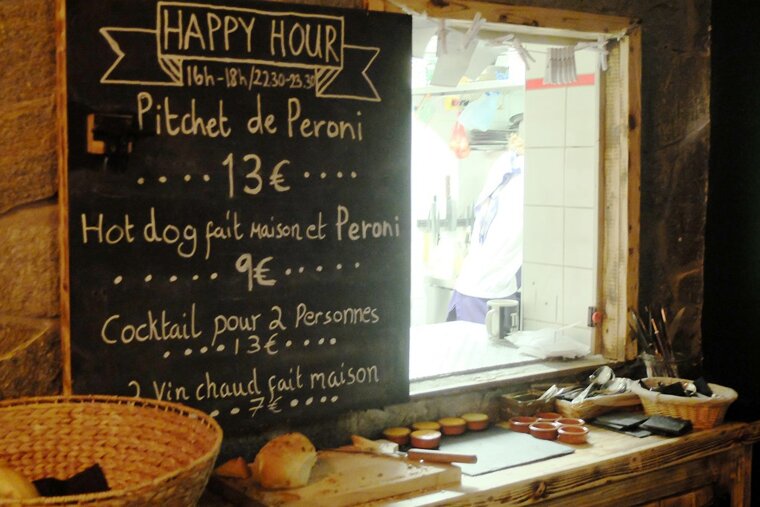 HAPPY HOUR
16h-18h/2230-23.30
Pitchet de Peroni
....13€....
Hot dog fait maison et Peroni
......9€......
Cocktail pour 2 Personnes
....13€....
2 Vin chaud fait maison
....7€....